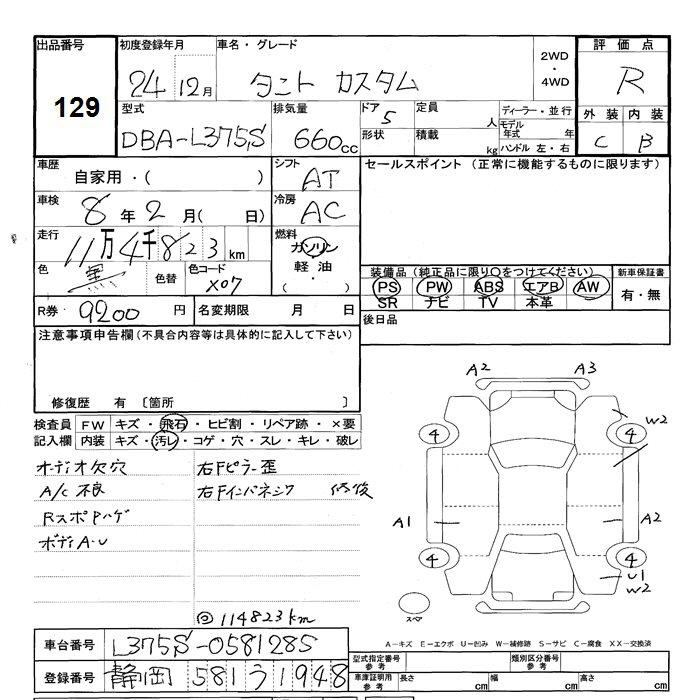 出品番号
129
初度登録年月
24 12月
車名・グレード
タント カスタム
2WD
・
4WD
評価点
R
外装 内装
C B
型式
DBA-L375S
排気量
660cc
ドア 5
形状
定員 人
積載 kg
ディーラー・並行
モデル年式 年
ハンドル 左・右
車歴
自家用・( )
シフト
AT
セールスポイント (正常に機能するものに限ります)
車検
8年2月( 日)
冷房
AC
走行
11万4千823km
燃料
ガソリン
軽油
・
( )
色
黒
色替
色コード
X07
装備品 (純正品に限り○をつけてください)
PS PW ABS エアB AW
SR ナビ TV 本革
新車保証書
有・無
R券 9200 円
名変期限 月 日
後日品
注意事項申告欄 (不具合内容等は具体的に記入して下さい)
修復歴 有 〔箇所 〕
検査員 FW キズ・飛石・ヒビ割・リペア跡・×要
記入欄 内装 キズ・汚レ・コゲ・穴・スレ・キレ・破レ
オーディオ欠穴
A/C不良
RスポPハゲ
ボディA・U
右Fピラー歪
右Fインパネジワ 修復
◎114823km
A2 A3
W2
4 4
A1 A2
4 4
U1
W2
スペア
A-キズ E-エクボ U-凹み W-補修跡 S-サビ C-腐食 XX-交換済
車台番号 L375S-0581285
登録番号 静岡 581 う 1948
型式指定番号 参考
類別区分番号 参考
車庫証明用 参考
長さ cm 幅 cm 高さ cm